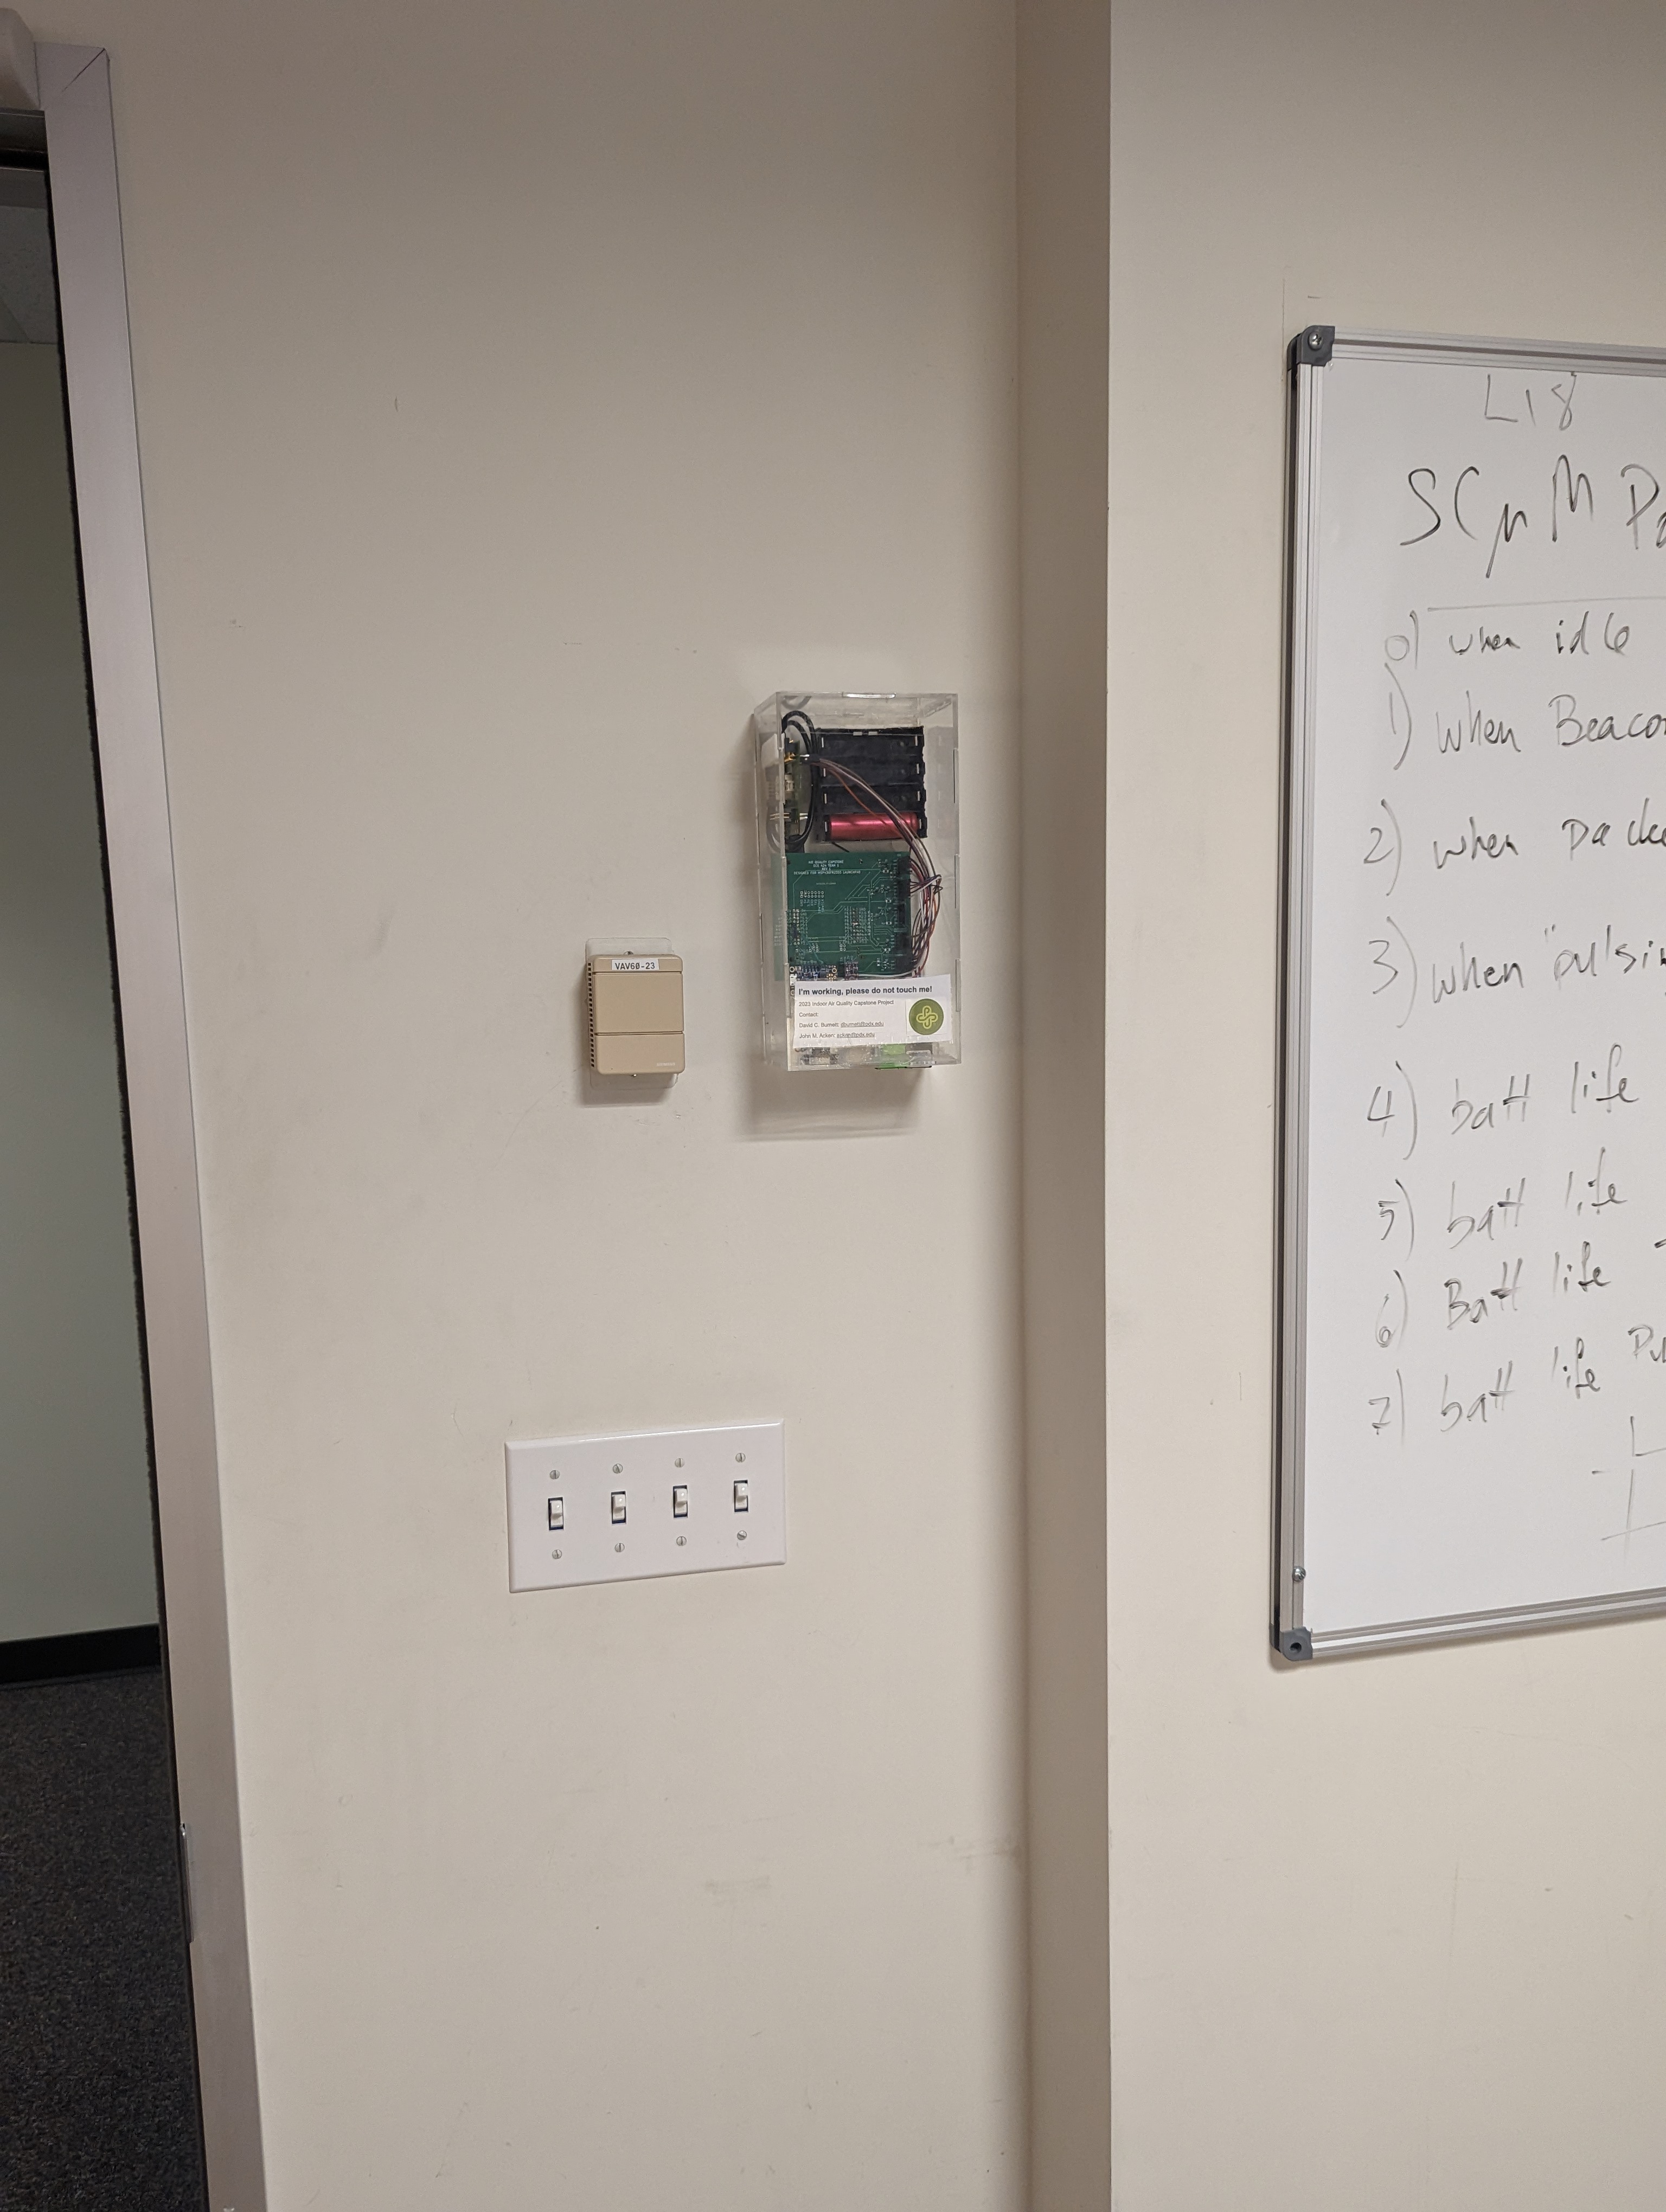 VAV60-23
I'm working, please do not touch me!
2023 Indoor Air Quality Capstone Project
Contact:
David C. Burnett: dburnett@pdx.edu
John M. Acken: acken@pdx.edu
L18
SCμM
0) when idle
1) when Beaco
2) when packe
3) when "pulsin
4) batt life
5) batt life
6) Batt life
7) batt life